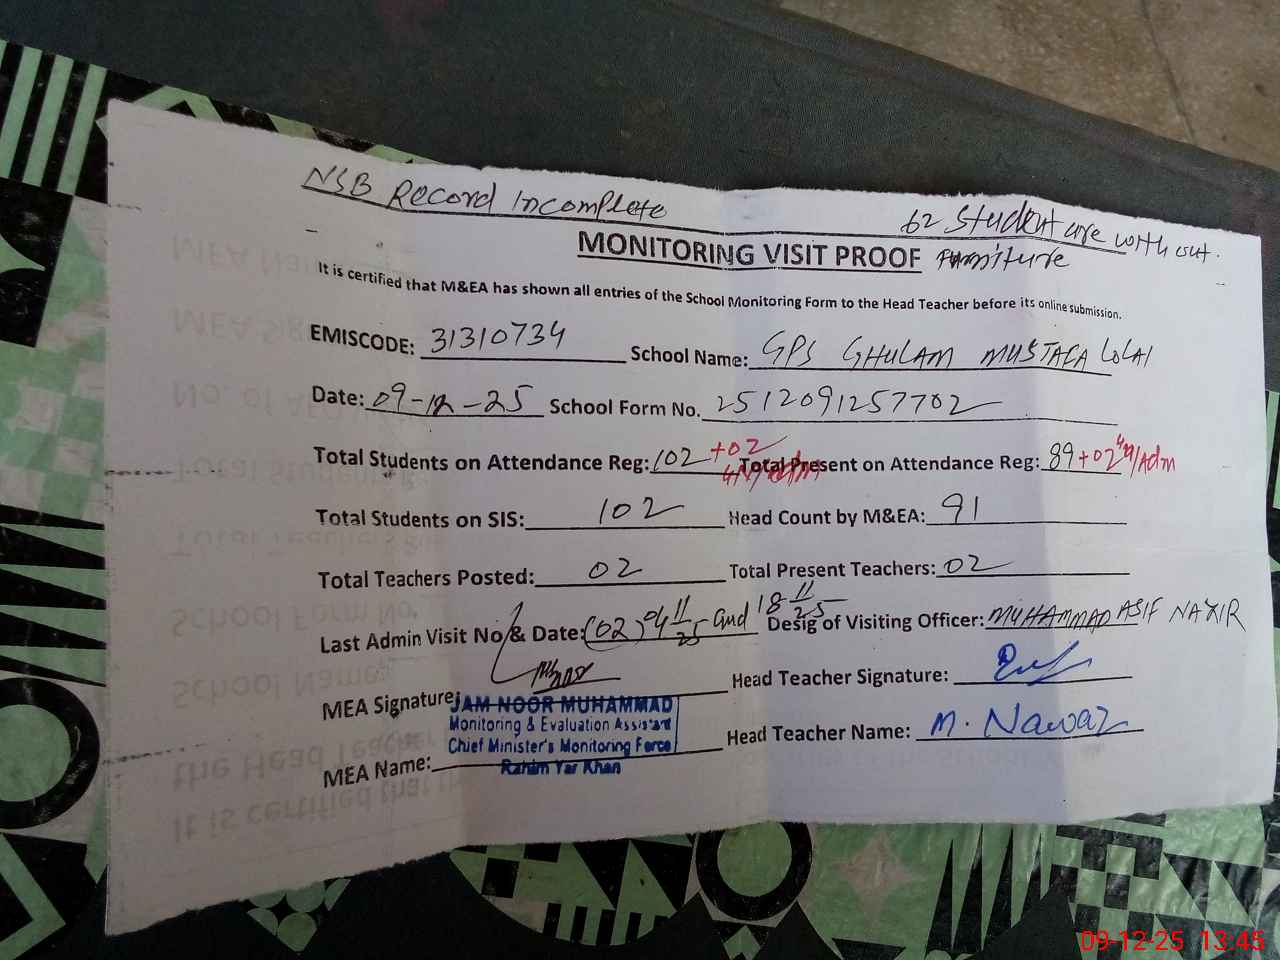 NSB Record Incomplete
62 Student are with out.
MONITORING VISIT PROOF Furniture
It is certified that M&EA has shown all entries of the School Monitoring Form to the Head Teacher before its online submission.
EMISCODE: 31310734 School Name: GPS GHULAM MUSTAFA LOLAI
Date: 09-12-25 School Form No. 2512091257702
Total Students on Attendance Reg: 102 +02 Total Present on Attendance Reg: 89 +02 /Adm
Total Students on SIS: 102 Head Count by M&EA: 91
Total Teachers Posted: 02 Total Present Teachers: 02
Last Admin Visit No & Date: (02) 04 11 25 and 18 11 25 Desig of Visiting Officer: MUHAMMAD ASIF NAZIR
MEA Signature: Head Teacher Signature:
JAM NOOR MUHAMMAD
Monitoring & Evaluation Assistant
Chief Minister's Monitoring Force
Rahim Yar Khan
MEA Name: Head Teacher Name: M. Nawaz
09-12-25 13:45